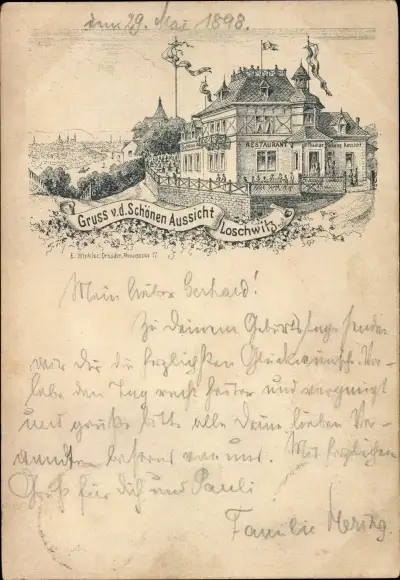 den 29. Mai 1898.
RESTAURANT
Gruss v.d. Schönen Aussicht
Loschwitz.
E. Winkler, Dresden,
Mein lieber Gerhard!
Zu deinem Geburtstage senden
wir dir die herzlichsten Glückwünsche. Ver-
lebe den Tag recht heiter und vergnügt
und grüße bitte alle deine lieben Ver-
wandten bestens von uns. Mit herzlichem
Gruß für dich und Pauli
Familie Hering.